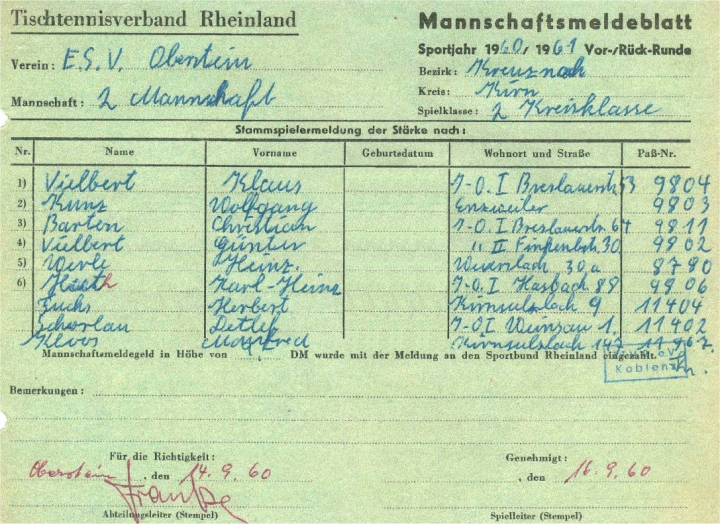 Tischtennisverband Rheinland
Mannschaftsmeldeblatt
Sportjahr 1960/ 1961 Vor-/Rück-Runde
Verein: E.S.V. Oberstein
Bezirk: Kreuznach
Kreis: Kirn
Mannschaft: 2 Mannschaft
Spielklasse: 2 Kreisklasse
Stammspielermeldung der Stärke nach:
Nr. Name Vorname Geburtsdatum Wohnort und Straße Paß-Nr.
1) Vielbert Klaus J-O. I Breslauerstr 53 9804
2) Kunz Wolfgang Enzweiler 9803
3) Barten Christian J-O. I Breslauerstr. 64 9811
4) Vielbert Günter " II Finkenbstr. 30 9802
5) Werle Heinz. 30a 8790
6) Karl-Heinz J-O. I Hasbach 88 9806
Fuchs Herbert Kirnsulzbach 9 11404
Scherlau Detlef J-O. I 1. 11402
Kloos Manfred Kirnsulzbach 147
Mannschaftsmeldegeld in Höhe von DM wurde mit der Meldung an den Sportbund Rheinland eingezahlt.
Koblenz
Bemerkungen:
Für die Richtigkeit:
Genehmigt:
Oberstein, den 14.9.60
, den 16.9.60
Franke
Abteilungsleiter (Stempel)
Spielleiter (Stempel)